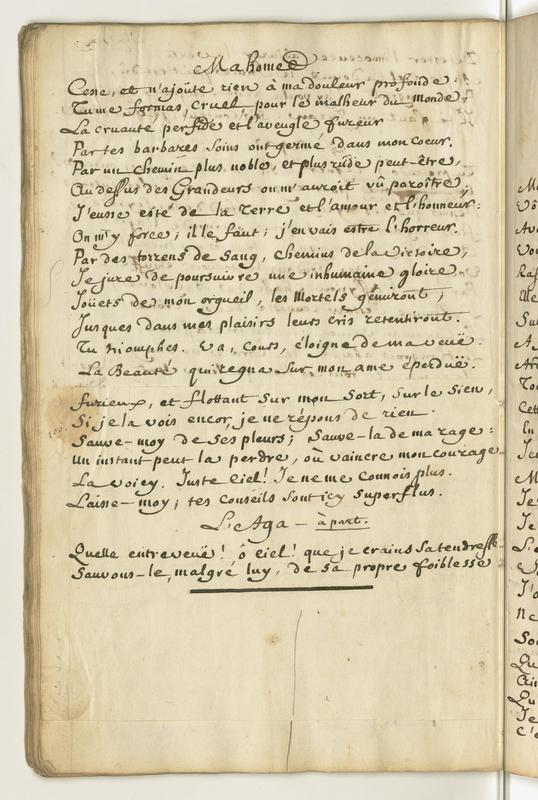 Mahomed
Cesse, et n'ajoûte rien à ma douleur profonde.
Tu me formas, cruel, pour le malheur du monde;
La cruauté perfide et l'aveugle fureur
Par tes barbares soins ont germé dans mon coeur.
Par un chemin plus noble, et plus rude peut-être,
Au dessus des Grandeurs on m'auroit vû paroître;
J'eusse esté de la Terre et l'amour et l'honneur:
On m'y force; il le faut; j'en vais estre l'horreur.
Par des torrens de sang, chemins de la victoire,
Je jure de poursuivre une inhumaine gloire
Joüets de mon orgueil, les Mortels gémiront;
Jusques dans mes plaisirs leurs cris retentiront.
Tu triomphes. Va, cours, éloigne de ma veuë.
La Beauté qui regna sur mon ame éperduë.
furieux, et flottant sur mon sort, sur le sien,
Si je la vois encor, je ne répons de rien.
Sauve-moy de ses pleurs; Sauve-la de ma rage:
Un instant peut la perdre, où vaincre mon courage
La voicy. Juste Ciel! Je ne me connois plus.
Laisse-moy; tes conseils sont icy superflus.
L'Aga - à part.
Quelle entreveuë! ô ciel! que je crains sa tendresse
Sauvons-le, malgré luy, de sa propre foiblesse